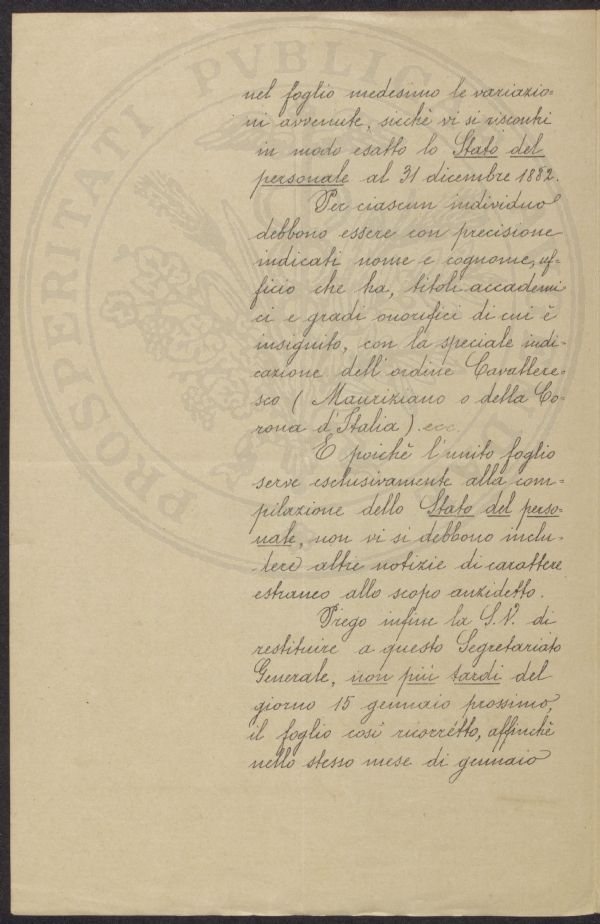 PROSPERITATI PVBLIC
nel foglio medesimo le variazio=
ni avvenute, sicchè vi si riscontri
in modo esatto lo Stato del
personale al 31 dicembre 1882.
Per ciascun individuo
debbono essere con precisione
indicati nome e cognome, uf=
ficio che ha, titoli accademi
ci e gradi onorifici di cui è
insignito, con la speciale indi=
cazione dell'ordine Cavallere=
sco (Mauriziano o della Co=
rona d'Italia). ecc.
E poichè l'unito foglio
serve esclusivamente alla com=
pilazione dello Stato del perso=
nale, non vi si debbono inclu=
dere altre notizie di carattere
estraneo allo scopo anzidetto.
Prego infine la S.V. di
restituire a questo Segretariato
Generale, non più tardi del
giorno 15 gennaio prossimo,
il foglio così ricorretto, affinchè
nello stesso mese di gennaio